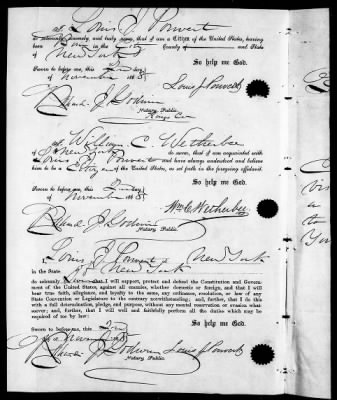 I, Louis J. Pouvert
do solemnly, sincerely, and truly swear, that I am a Citizen of the United States, having
been born in the City County of and State
of New York
So help me God.
Sworn to before me, this 2nd day
of November 18
Louis J Pouvert
Notary Public.
Kings Co
I, William C Wetherbee
of New York do swear, that I am acquainted with
Louis J. Pouvert and have always understood and believe
him to be a Citizen of the United States, as set forth in the foregoing affidavit.
So help me God.
Sworn to before me, this 2nd day
of November 18
Wm C Wetherbee
Notary Public.
I, Louis J Pouvert of New York
in the State of New York
do solemnly that I will support, protect and defend the Constitution and Govern-
ment of the United States, against all enemies, whether domestic or foreign, and that I will
bear true faith, allegiance, and loyalty to the same, any ordinance, resolution, or law of any
State Convention or Legislature to the contrary notwithstanding; and, further, that I do this
with a full determination, pledge, and purpose, without any mental reservation or evasion what-
soever; and, further, that I will well and faithfully perform all the duties which may be
required of me by law:
So help me God.
Sworn to before me, this 2nd
Louis J Pouvert
Notary Public.